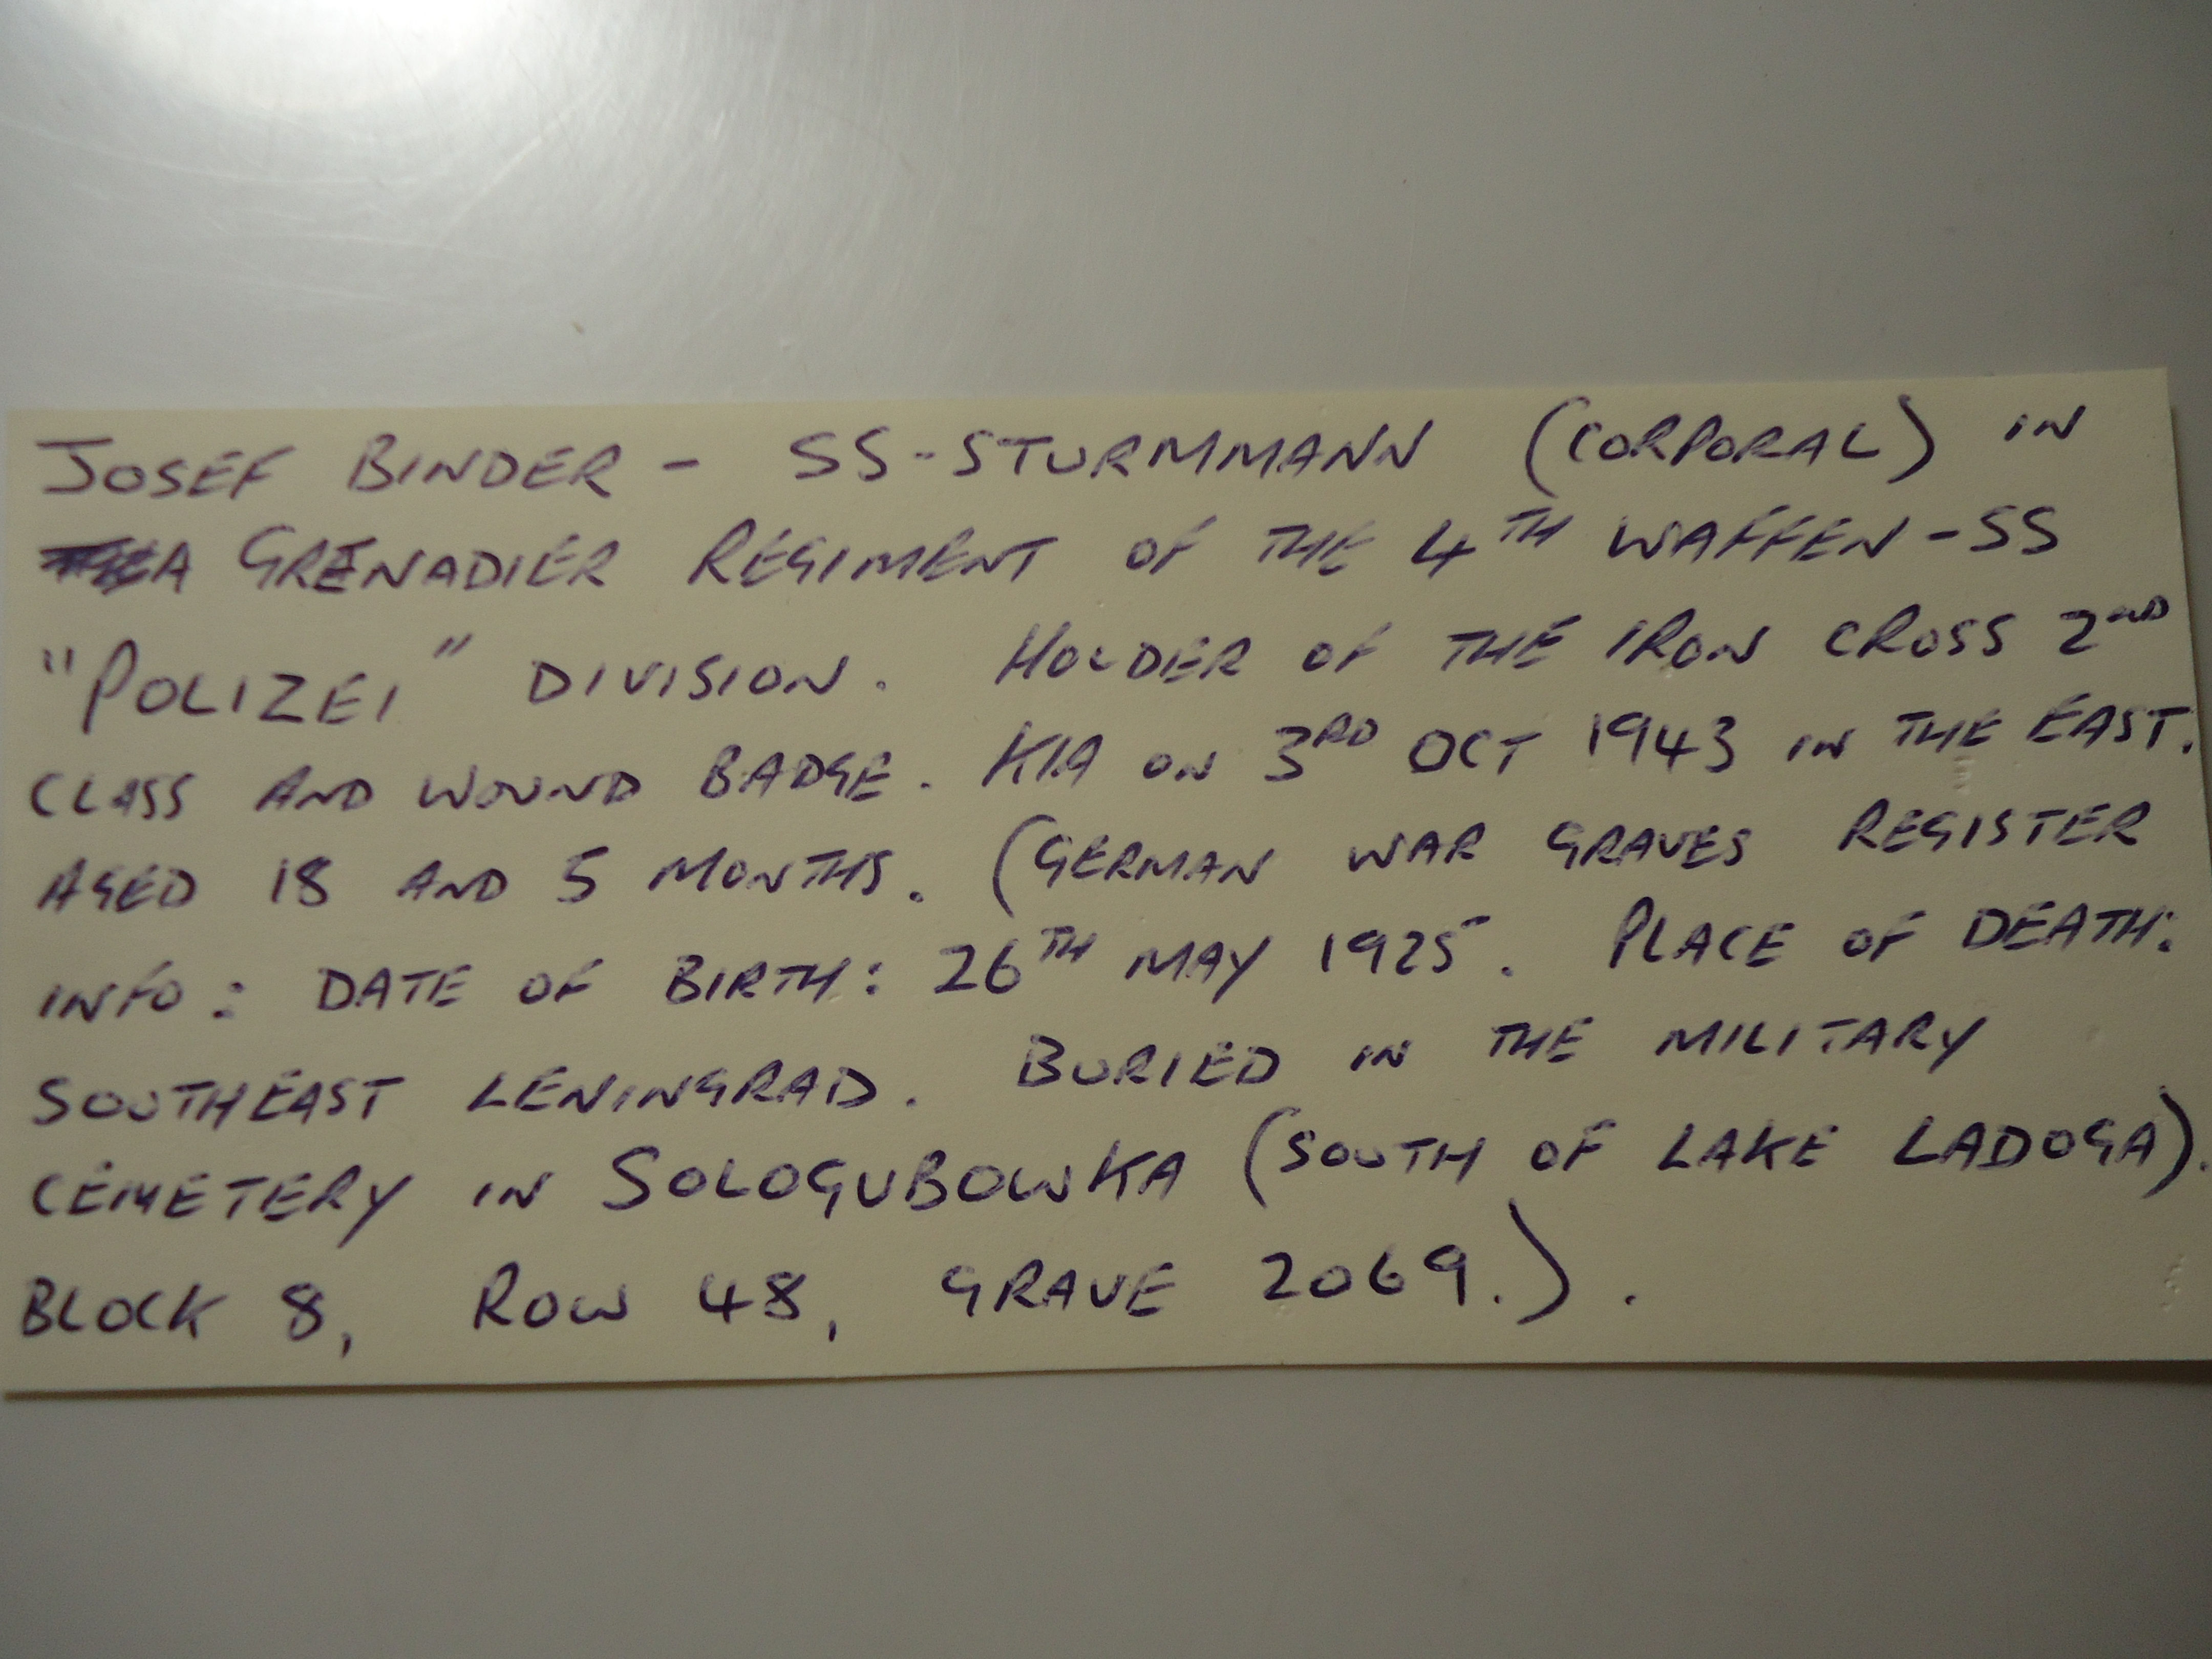 JOSEF BINDER - SS-STURMMANN (CORPORAL) IN
A GRENADIER REGIMENT OF THE 4TH WAFFEN-SS
"POLIZEI" DIVISION. HOLDER OF THE IRON CROSS 2ND
CLASS AND WOUND BADGE. KIA ON 3RD OCT 1943 IN THE EAST.
AGED 18 AND 5 MONTHS. (GERMAN WAR GRAVES REGISTER
INFO: DATE OF BIRTH: 26TH MAY 1925. PLACE OF DEATH:
SOUTHEAST LENINGRAD. BURIED IN THE MILITARY
CEMETERY IN SOLOGUBOWKA (SOUTH OF LAKE LADOGA).
BLOCK 8, ROW 48, GRAVE 2069.).